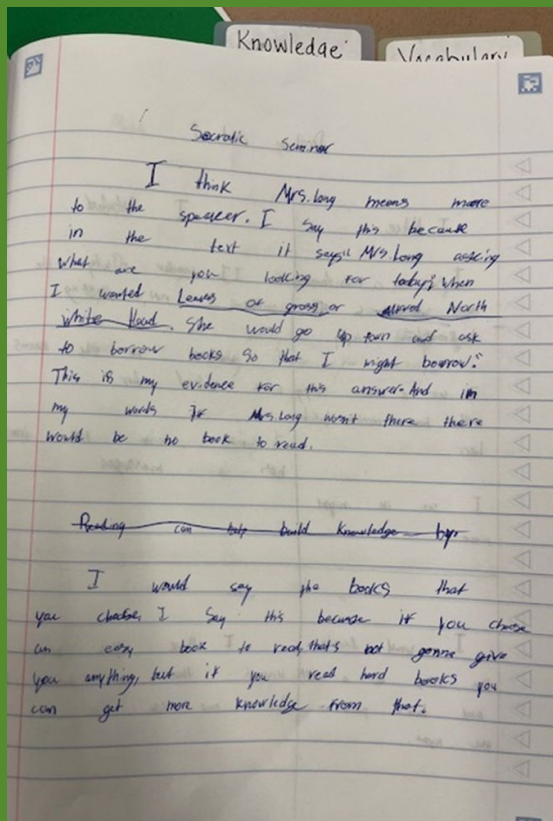 Knowledge
Vocabulary
Socratic Seminar
I think Mrs. Long means more
to the speaker. I say this because
in the text it says" Mrs. Long asking
What are you looking for today? When
I wanted Leaves of grass or North
White Hand. She would go up town and ask
to borrow books so that I might borrow."
This is my evidence for this answer. And in
my words If Mrs. Long wasn't there there
would be no book to read.
Reading can help build knowledge by
I would say the books that
you choose, I say this because if you choose
an easy book to read, that's not gonna give
you anything, but if you read hard books you
can get more knowledge from that.